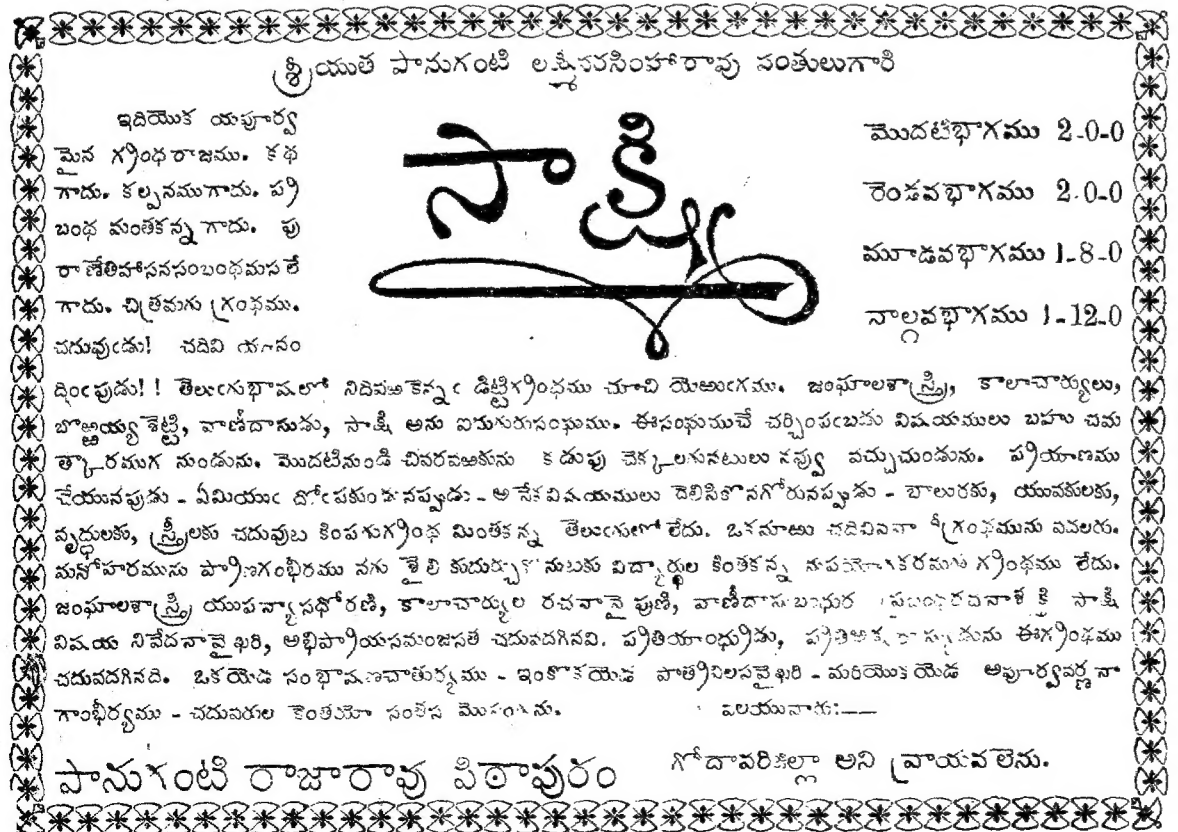 శ్రీయుత పానుగంటి లక్ష్మీనరసింహారావు పంతులుగారి
సాక్షి
ఇదియొక యపూర్వ
మైన గ్రంథరాజము. కథ
గాదు. కల్పనముగాదు. ప్ర
బంధ మంతకన్న గాదు. పు
రాణేతిహాసనసంబంధమసలే
గాదు. చిత్రమగు గ్రంథము.
చదువుఁడు! చదివి యానం
మొదటిభాగము 2-0-0
రెండవభాగము 2-0-0
మూడవభాగము 1-8-0
నాల్గవభాగము 1-12-0
దింఁపుడు!! తెలుఁగుభాషలో నిదివఱకెన్నఁ డిట్టిగ్రంథము చూచి యెఱుఁగము. జంఘాలశాస్త్రి, కాలాచార్యులు,
బొఱ్ఱయ్యశెట్టి, వాణీదాసుడు, సాక్షి అను ఐదుగురుసంఘము. ఈసంఘముచే చర్చింపఁబడు విషయములు బహు చమ
త్కారముగ నుండును. మొదటినుండి చివరవఱకును కడుపు చెక్కలగునటులు నవ్వు వచ్చుచుండును. ప్రయాణము
చేయునపుడు - ఏమియుఁ దోఁపకుండునప్పుడు - అనేకవిషయములు దెలిసికొనగోరునప్పుడు - బాలురకు, యువకులకు,
వృద్ధులకు, స్త్రీలకు చదువుట కింపగుగ్రంథ మింతకన్న తెలుఁగులో లేదు. ఒకమాఱు చదివినచో నీగ్రంథమును వదలరు.
మనోహరమును ప్రాణగంభీరము నగు శైలి కుదుర్చుకొనుటకు విద్యార్థుల కింతకన్న నుపయోగకరమగు గ్రంథము లేదు.
జంఘాలశాస్త్రి యుపన్యాసధోరణి, కాలాచార్యుల రచనానైపుణి, వాణీదాసు బంధుర ప్రబంధరచనాశక్తి సాక్షి
విషయ నివేదనావైఖరి, అభిప్రాయసమంజసత చదువదగినవి. ప్రతియాంధ్రుఁడు, ఈగ్రంథము
చదువదగినది. ఒకయెడ సంభాషణచాతుర్యము - ఇంకొకయెడ పాత్రవిలసవైఖరి - మరియొకయెడ అపూర్వవర్ణనా
గాంభీర్యము - చదువరుల కెంతయో సంతస మొసంగును. వలయువారు:—
పానుగంటి రాజారావు పిఠాపురం గోదావరిజిల్లా అని వ్రాయవలెను.